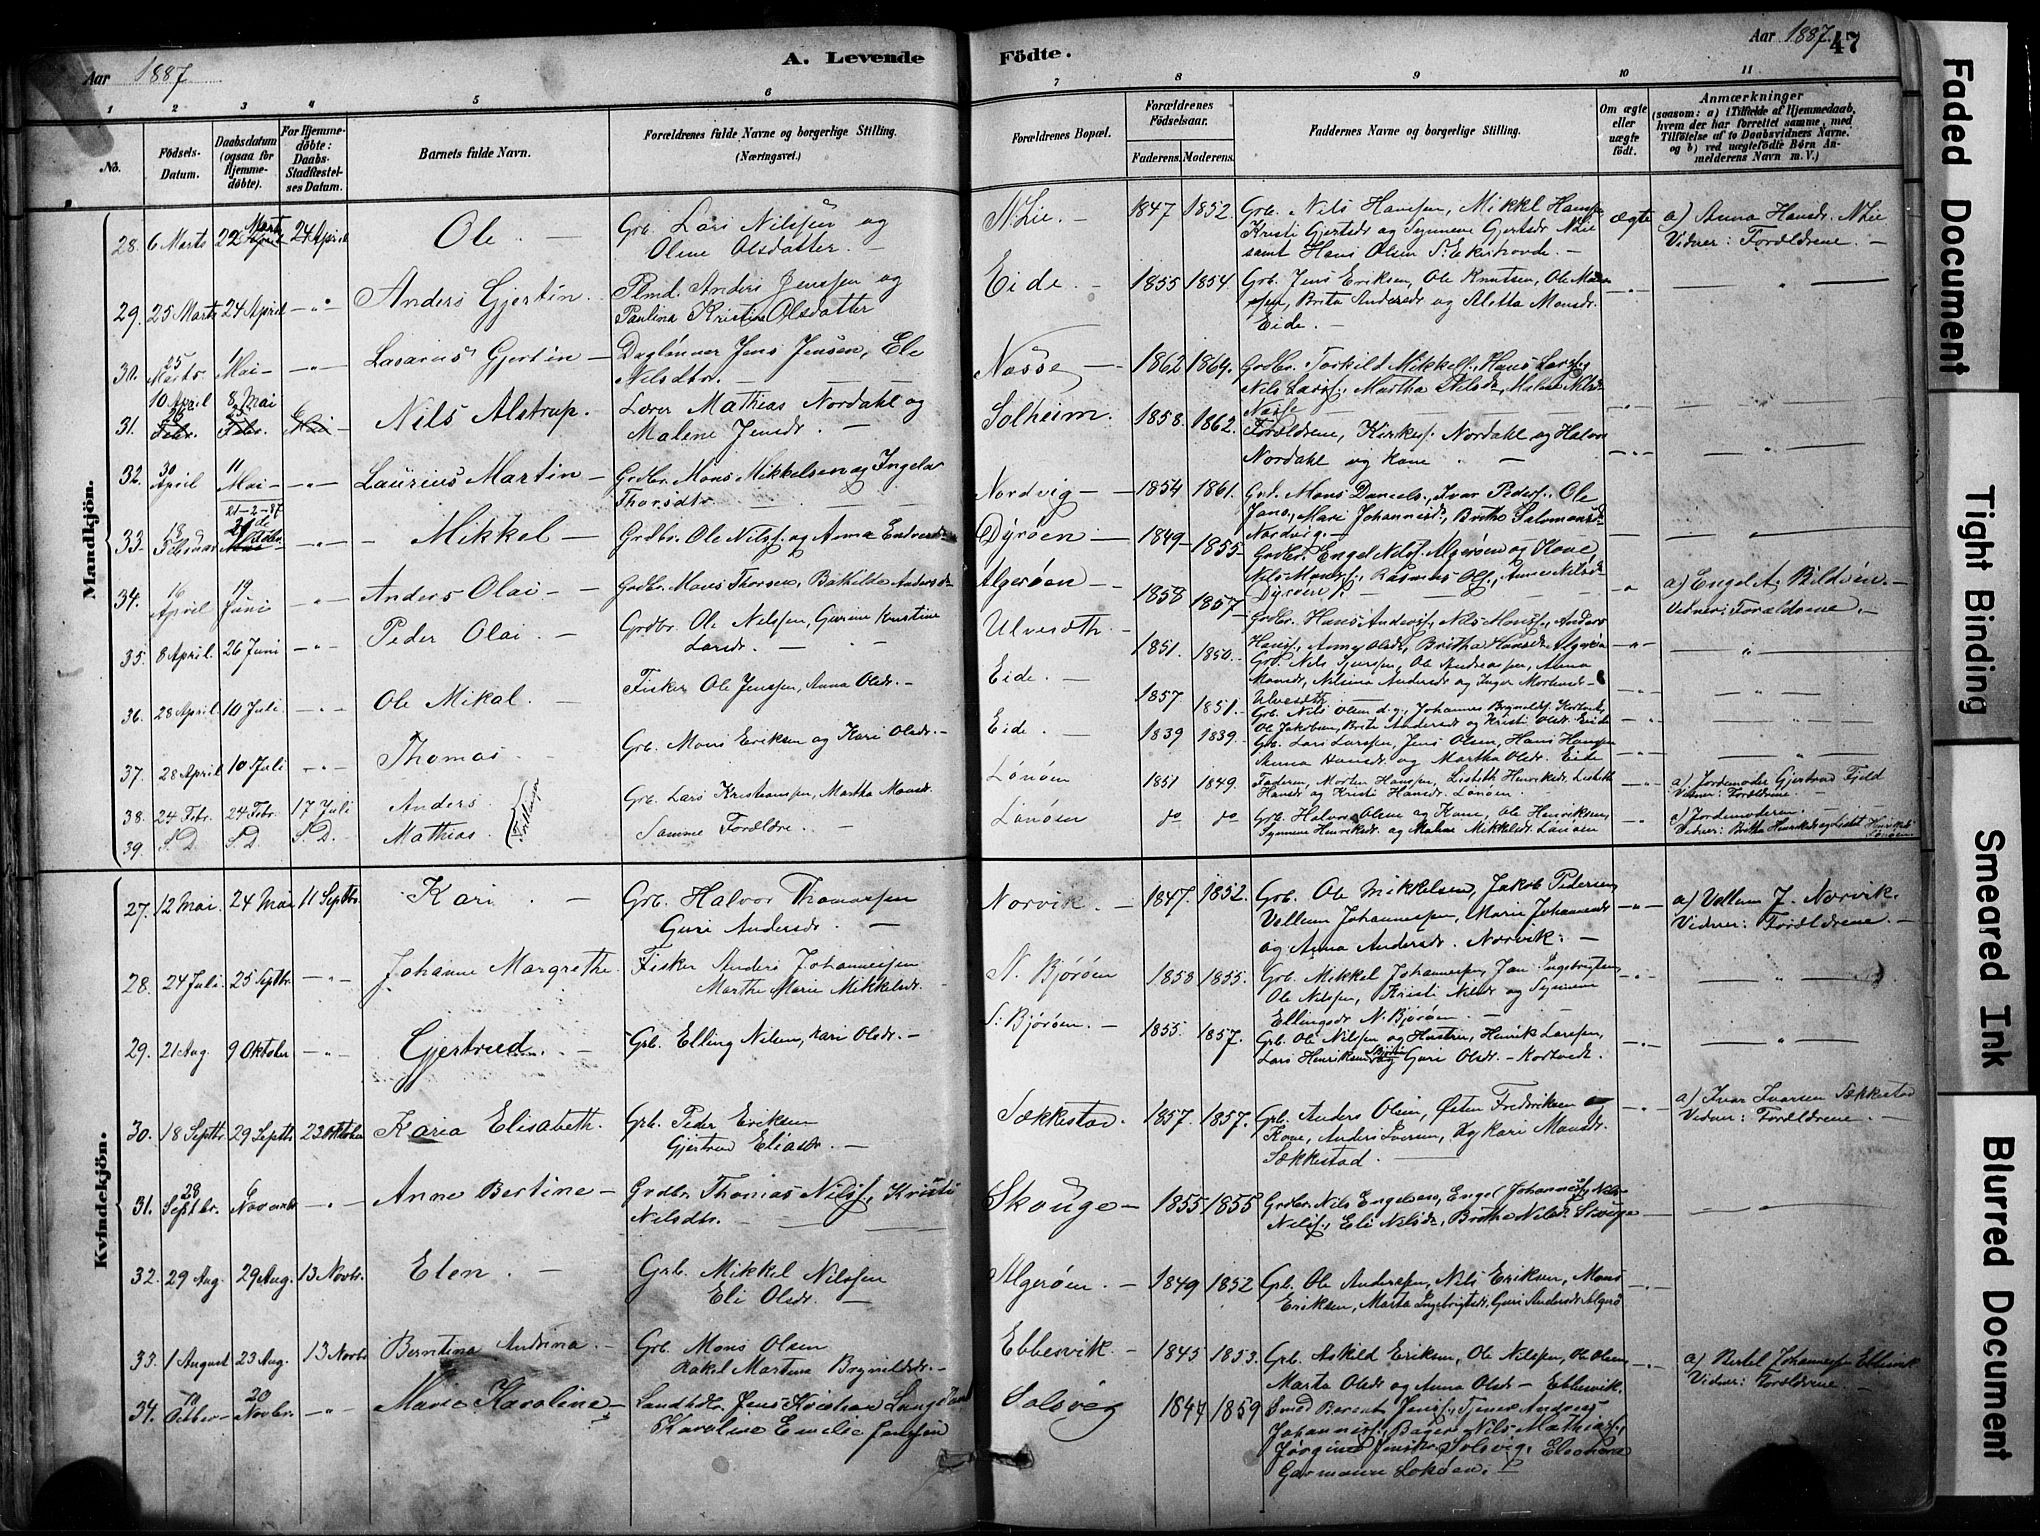 Aar 1887
A. Levende
Födte.
Aar 1887. 47
1 2 3 4 5 6 7 8 9 10 11
No.
Födsels-Datum.
Daabsdatum (ogsaa for Hjemme-döbte).
For Hjemme-döbte: Daabs-Stadfæstel-ses Datum.
Barnets fulde Navn.
Forældrenes fulde Navne og borgerlige Stilling.
(Næringsvei.)
Forældrenes Bopæl.
Forældrenes Födselsaar.
Faderens. Moderens.
Faddernes Navne og borgerlige Stilling.
Om ægte eller uægte födt.
Anmærkninger
(saasom: a) i Tilfælde af Hjemmedaab, hvem der har forrettet samme, med Tilföielse af to Daabsvidners Navne. og b) ved uægtefödte Börn An-melderens Navn m. V.)
Mandkjön.
28. 6 Marts 22 Marts 24 April Ole. — Grb. Lars Nilssen og
Oline Olsdatter. —
N. Lie. — 1847 1852. Grb. Nils Hanssen, Mikkel Hanss
Kristi Gjertsdr og Synneve Gjertsdr N Lie
samt Hans Olsen
ægte a) Anna Hansdr. N Lie
Vidner: Forældrene. —
29. 25 Marts 24 April —"— Anders Gjertin. Anders Jenssen og
Paulina Kristina Olsdatter
Eide. — 1855 1854. Grb. Jens Eriksen, Ole Knutsen, Ole
Brita Andersdr og Aletta Monsdr.
Eide. —
30. 25 Marts. 1 Mai — —"— Lasarus Gjertin — Daglønner Jens Jensen, Eli
Nilsdtr. —
Næsse — 1862 1864. Grdbr. Torkild Mikkels., Hans Larss.,
Nils Larss., Martha Nilsdr,
Næsse
31. 10 April 8 Mai Nils Alstrup. Lærer Mathias Nordahl og
Malene Jensdr. —
Solheim. 1858. 1862. Forældrene, Kirkes. Nordahl og Halvor
Nordahl og Kone —
32. 30 April 11 Mai — —"— Laurius Martin — Grdbr. Mons Mikkelsen og Ingebor
Thorsdtr
Nordvig — 1854 1861. Grb. Mons Daniels., Ivar Peders., Ole
Jans., Mari Johannesdr, Britha Salomonsd
Nordvig. —
21-2-87
33. 13 Februar —"— Mikkel — Grdbr. Ole Nilss. og Anna
Dyrøen — 1849 — 1855 — Grdbr. Engel Nilss. Algerøen og Kone,
Nils Monss., Rasmus Ols., Anna Nilsdr
Dyrøen.
34. 16 April 19 Juni —"— Anders Olai — Grdbr. Mons Thorsen, Bothilde Andersdr
Algerøen — 1858 1857 — Grdbr. Hans Anderss, Nils Monss., Anders
Hanss., Anna Olsdr, Britha Hansdr Algerøen
a) Engel A. Bildøen. —
Vidner: Forældrene. —
35. 8 April. 26 Juni —"— Peder Olai. — Grdbr. Ole Nilssen, Gurine Kristine
Larsdr. —
Ulvesæth. — 1851. 1850. Grb. Nils Ole Andreassen, Anna
Monsdr, Nilsina Andersdr og Inger Mortensdr —
Ulvesæth
36. 28 April 10 Juli. —"— Ole Mikal. — Fisker Ole Jenssen, Anna Olsdr. —
Eide. — 1857. 1851. Grb. Nils Olsen d.y., Johannes
Ole Jakobsen, Brita Andersdr og Kristi Olsdr. Eide
37. 28 April 10 Juli —"— Thomas — Grb. Mons Eriksen og Kari Olsdr. —
Eide. — 1839 1839. Grb. Lars Larssen, Jens Olsen, Hans Hanssen
Anna Hansdr. og Martha Olsdr. Eide
38. 24 Febr. 24 Febr. 17 Juli Anders. (Tvillinger) Grb. Lars Kristianssen, Martha Monsdr.
Lønøen 1851 1849. Faderen, Morten Hanssen, Lisbeth Henriksdr, Lisbeth
Hansdr og Kristi Hansdr. Lønøen. —
a) Jordemoder Gjertrud Fjeld
Vidner: Forældrene. —
39. S. D. S. D. S. D. Mathias. Samme Forældre. —
Lønøen do do Grb. Halvor Olsen og Kone, Ole Henriksen,
Synneva Henriksdr og Malene Mikkelsdr. Lønøen
a) Jordemoderen.
Vidner: Britha Henriksdr og Lisbet Henriksdr
Lønøen.
Kvindekjön.
27. 12 Mai. 24 Mai 11 Septbr. Kari. — Grb. Halvor Thomassen
Guri Andersdr. —
Norvik. — 1847. 1852. Grb. Ole Mikkelsen, Jakob Pedersen,
Vellum Johannessen, Marie Johannesdr
og Anna Andersdr. Norvik. —
a) Vellum J. Norvik.
Vidner: Forældrene. —
28. 24 Juli. 25 Septbr. —"— Johanne Margrethe. Fisker Anders Johannessen
Marthe Marie Mikkelsdr.
N. Bjørøen 1858 1855. Grb. Mikkel Johannessen, Jan Ingebrigtsen,
Ole Nilssen, Kristi Nilsdr og Synneve
Ellingsdr N. Bjørøen. —
29. 21 Aug. 9 Oktober —"— Gjertrud. — Grb. Elling Nilsen, Kari Olsdr. —
S. Bjørøen. — 1855. 1857. Grb. Ole Nilssen og Hustru, Henrik Larssen,
Lars Henriksen Bjørøen og Guri Olsdr. — Kortvedt.
30. 18 Septbr. 29 Septbr. 23 Oktober Karia Elisabeth. Grb. Peder Eriksen
Gjertrud Eliasdr.
Sækkestad. 1857. 1857. Grb. Anders Olsen, Østen Fredriksen &
Kone, Anders Iversen, og Kari Monsdr.
Sækkestad. —
a) Ivar Ivarsen Sækkestad
Vidner: Forældrene. —
31. 28 Septbr. 6 Novembr —"— Anne Bertine — Grdbr. Thomas Nilss., Kristi
Nilsdtr. —
Skouge — 1855 1855 Grdbr. Nils Engelsen, Engel Johanness, Nils
Nilss., Eli Nilsdr, Britha Nilsdr Skouge
32. 29 Aug. 29 Aug. 13 Novbr. Elen. — Grb. Mikkel Nilssen
Eli Olsdr. —
Algerøen. — 1849 1852 Grb. Ole Anderssen, Nils Eriksen, Mons
Eriksen, Marta Ingebrigtsdr, Guri Andersdr Algerø
33. 1 August 23 Aug. 13 Novbr Berntina Andrina. — Grb. Mons Olsen
Rakel Martina Brynildsdr. —
Ebbesvik. — 1845 1853. Grb. Askild Eriksen, Ole Nilssen, Ole Olsen,
Marta Olsdr og Anna Olsdr — Ebbesvik.
a) Bertel Johannessen Ebbesvik
Vidner: Forældrene. —
34. Octber 20 Novbr. —"— Marie Karoline — Landhdlr. Jens Kristian Lange
Karoline Emilie Janssen
Solsvig 1847 1859 Smed Berent Jenss., Tjener Andreas
Johanness., Bager Nils Mathiass.,
Jørgine Jensdtr. Solsvig, Eleonora
Garmann
Faded Document
Tight Binding
Smeared Ink
Blurred Document